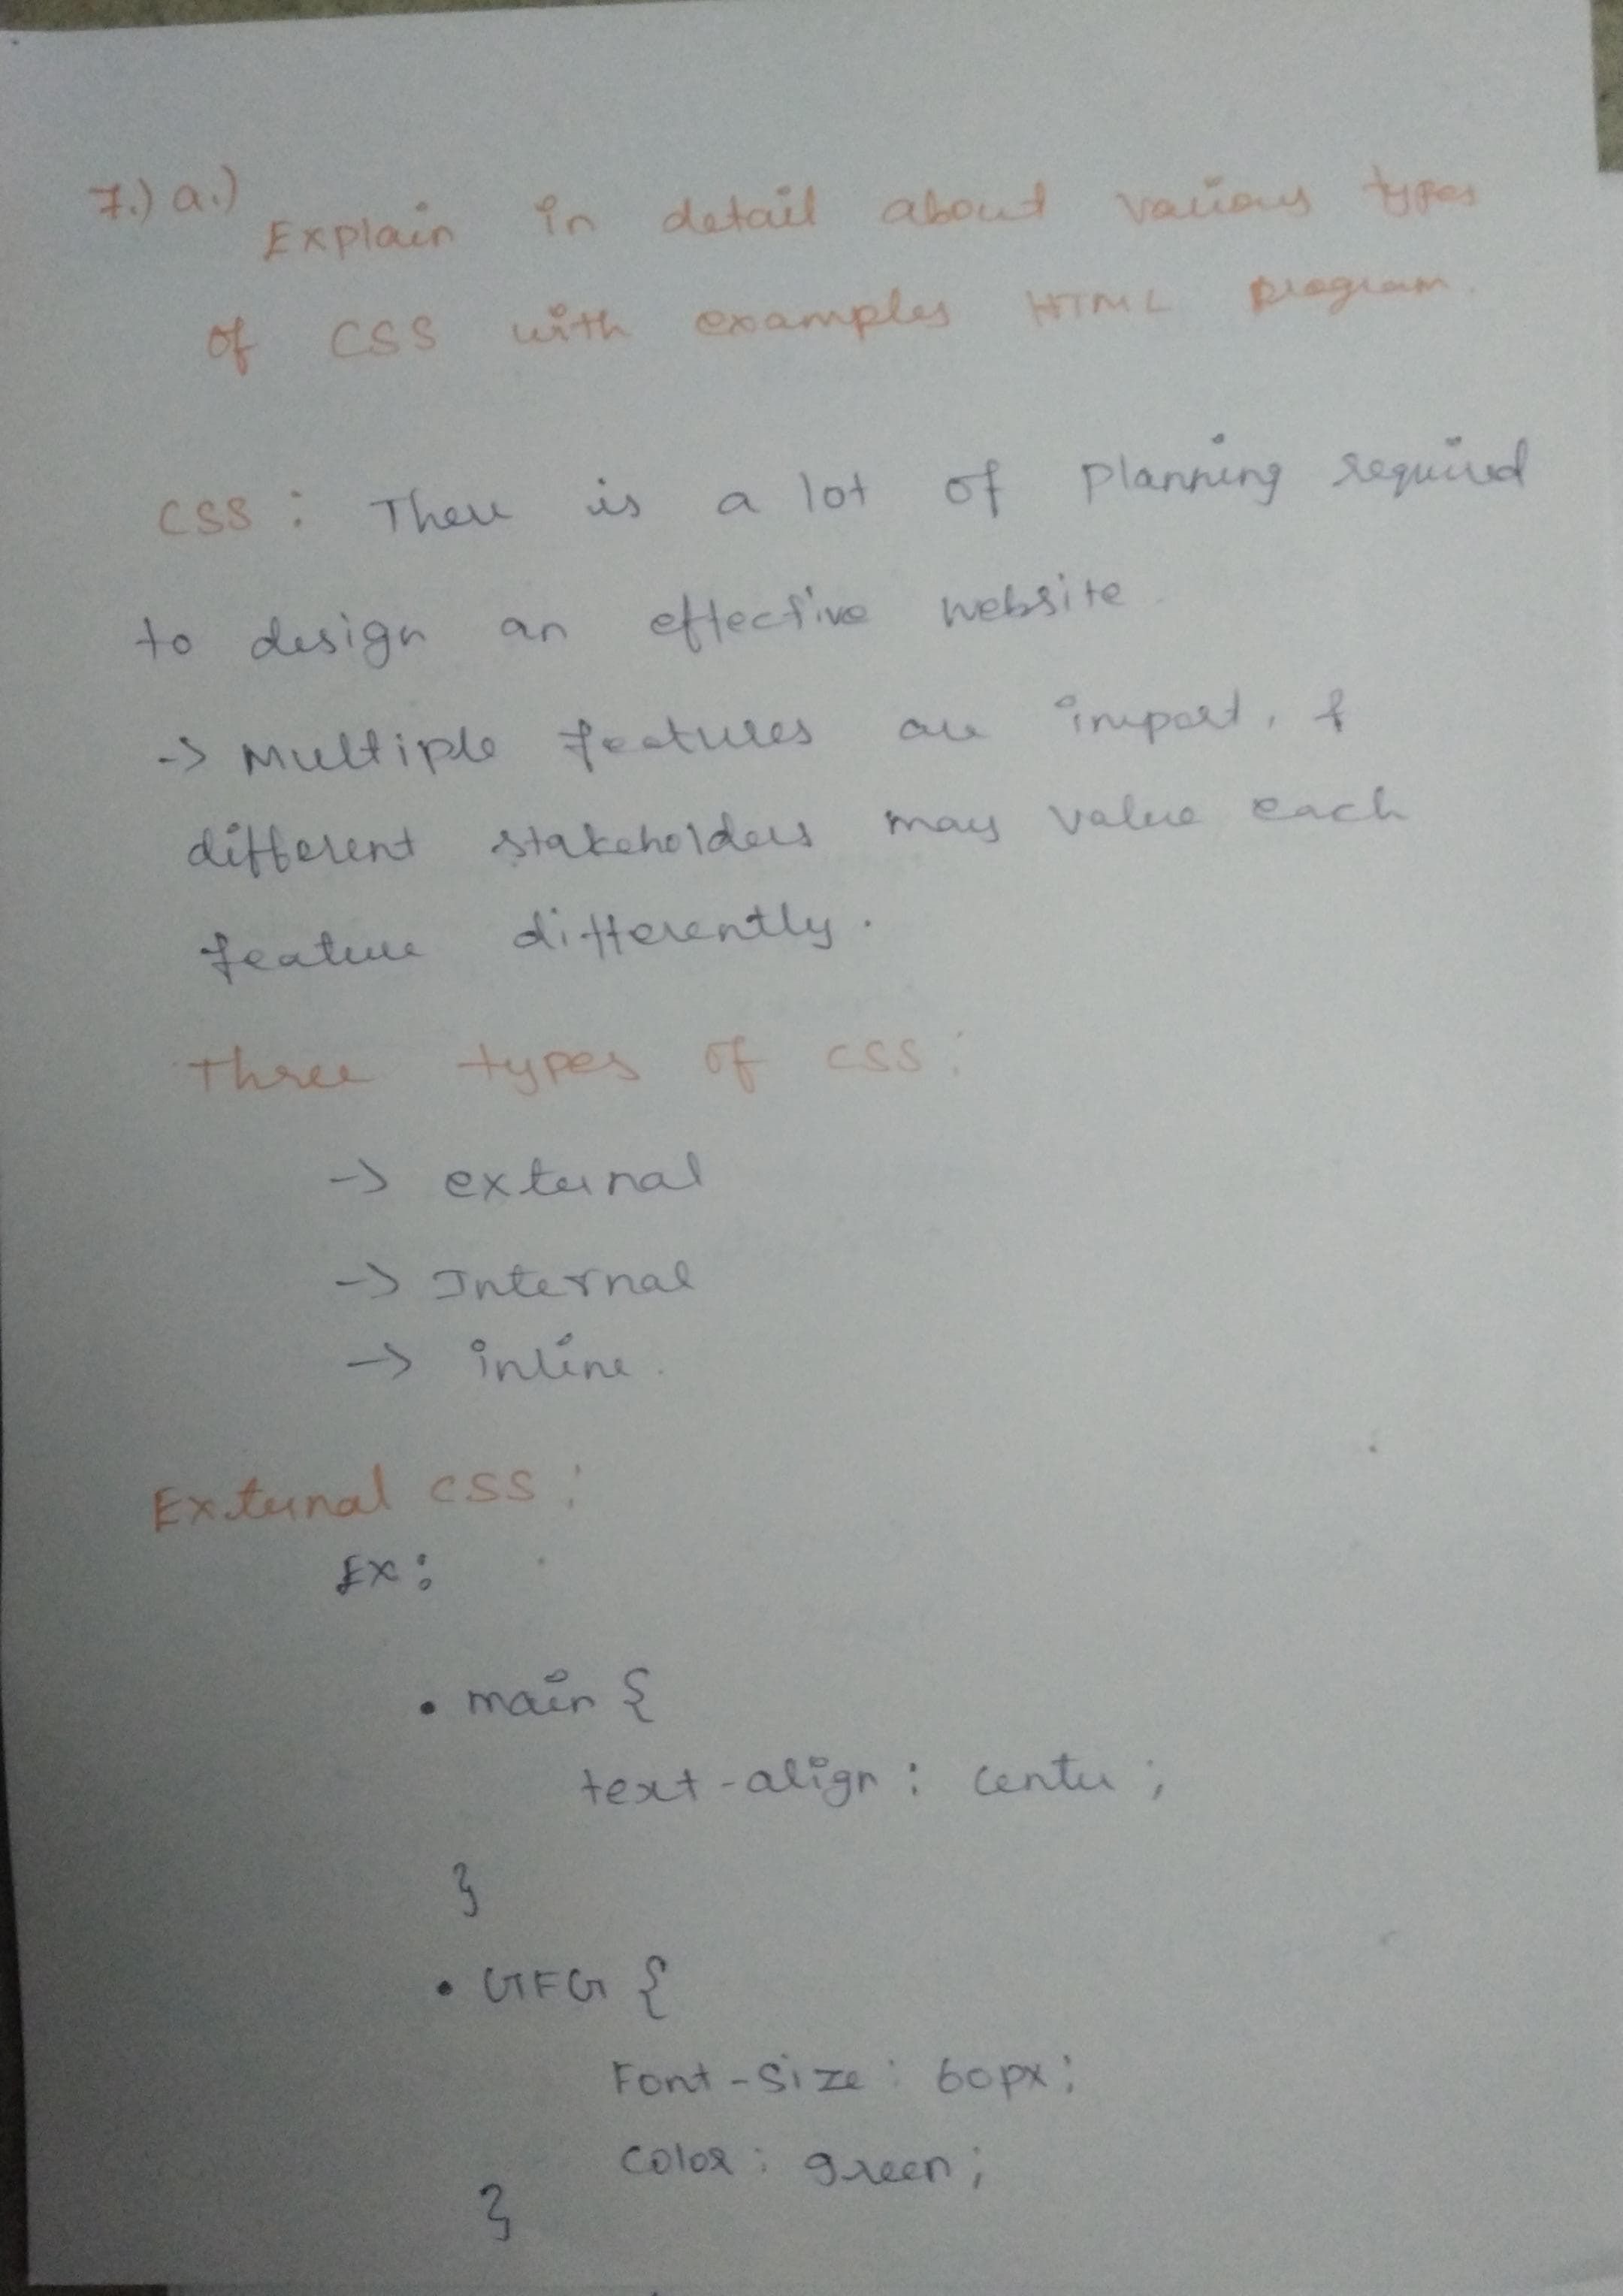 7.) a.) Explain in detail about various types
of CSS with examples HTML program.
CSS : There is a lot of planning required
to design an effective website.
-> Multiple features are import, &
different stakeholders may value each
feature differently.
Three types of CSS:
-> external
-> Internal
-> inline.
External CSS:
Ex:
. main {
text-align : center ;
}
. GFG {
Font-size : 60px;
Color : green;
}